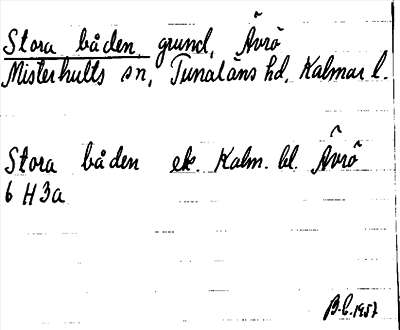 Stora båden, grund, Ävrö
Misterhults sn, Tunaläns hd, Kalmar l.
Stora båden ek. Kalm. bl. Ävrö
6 H 3a
B.C. 1957